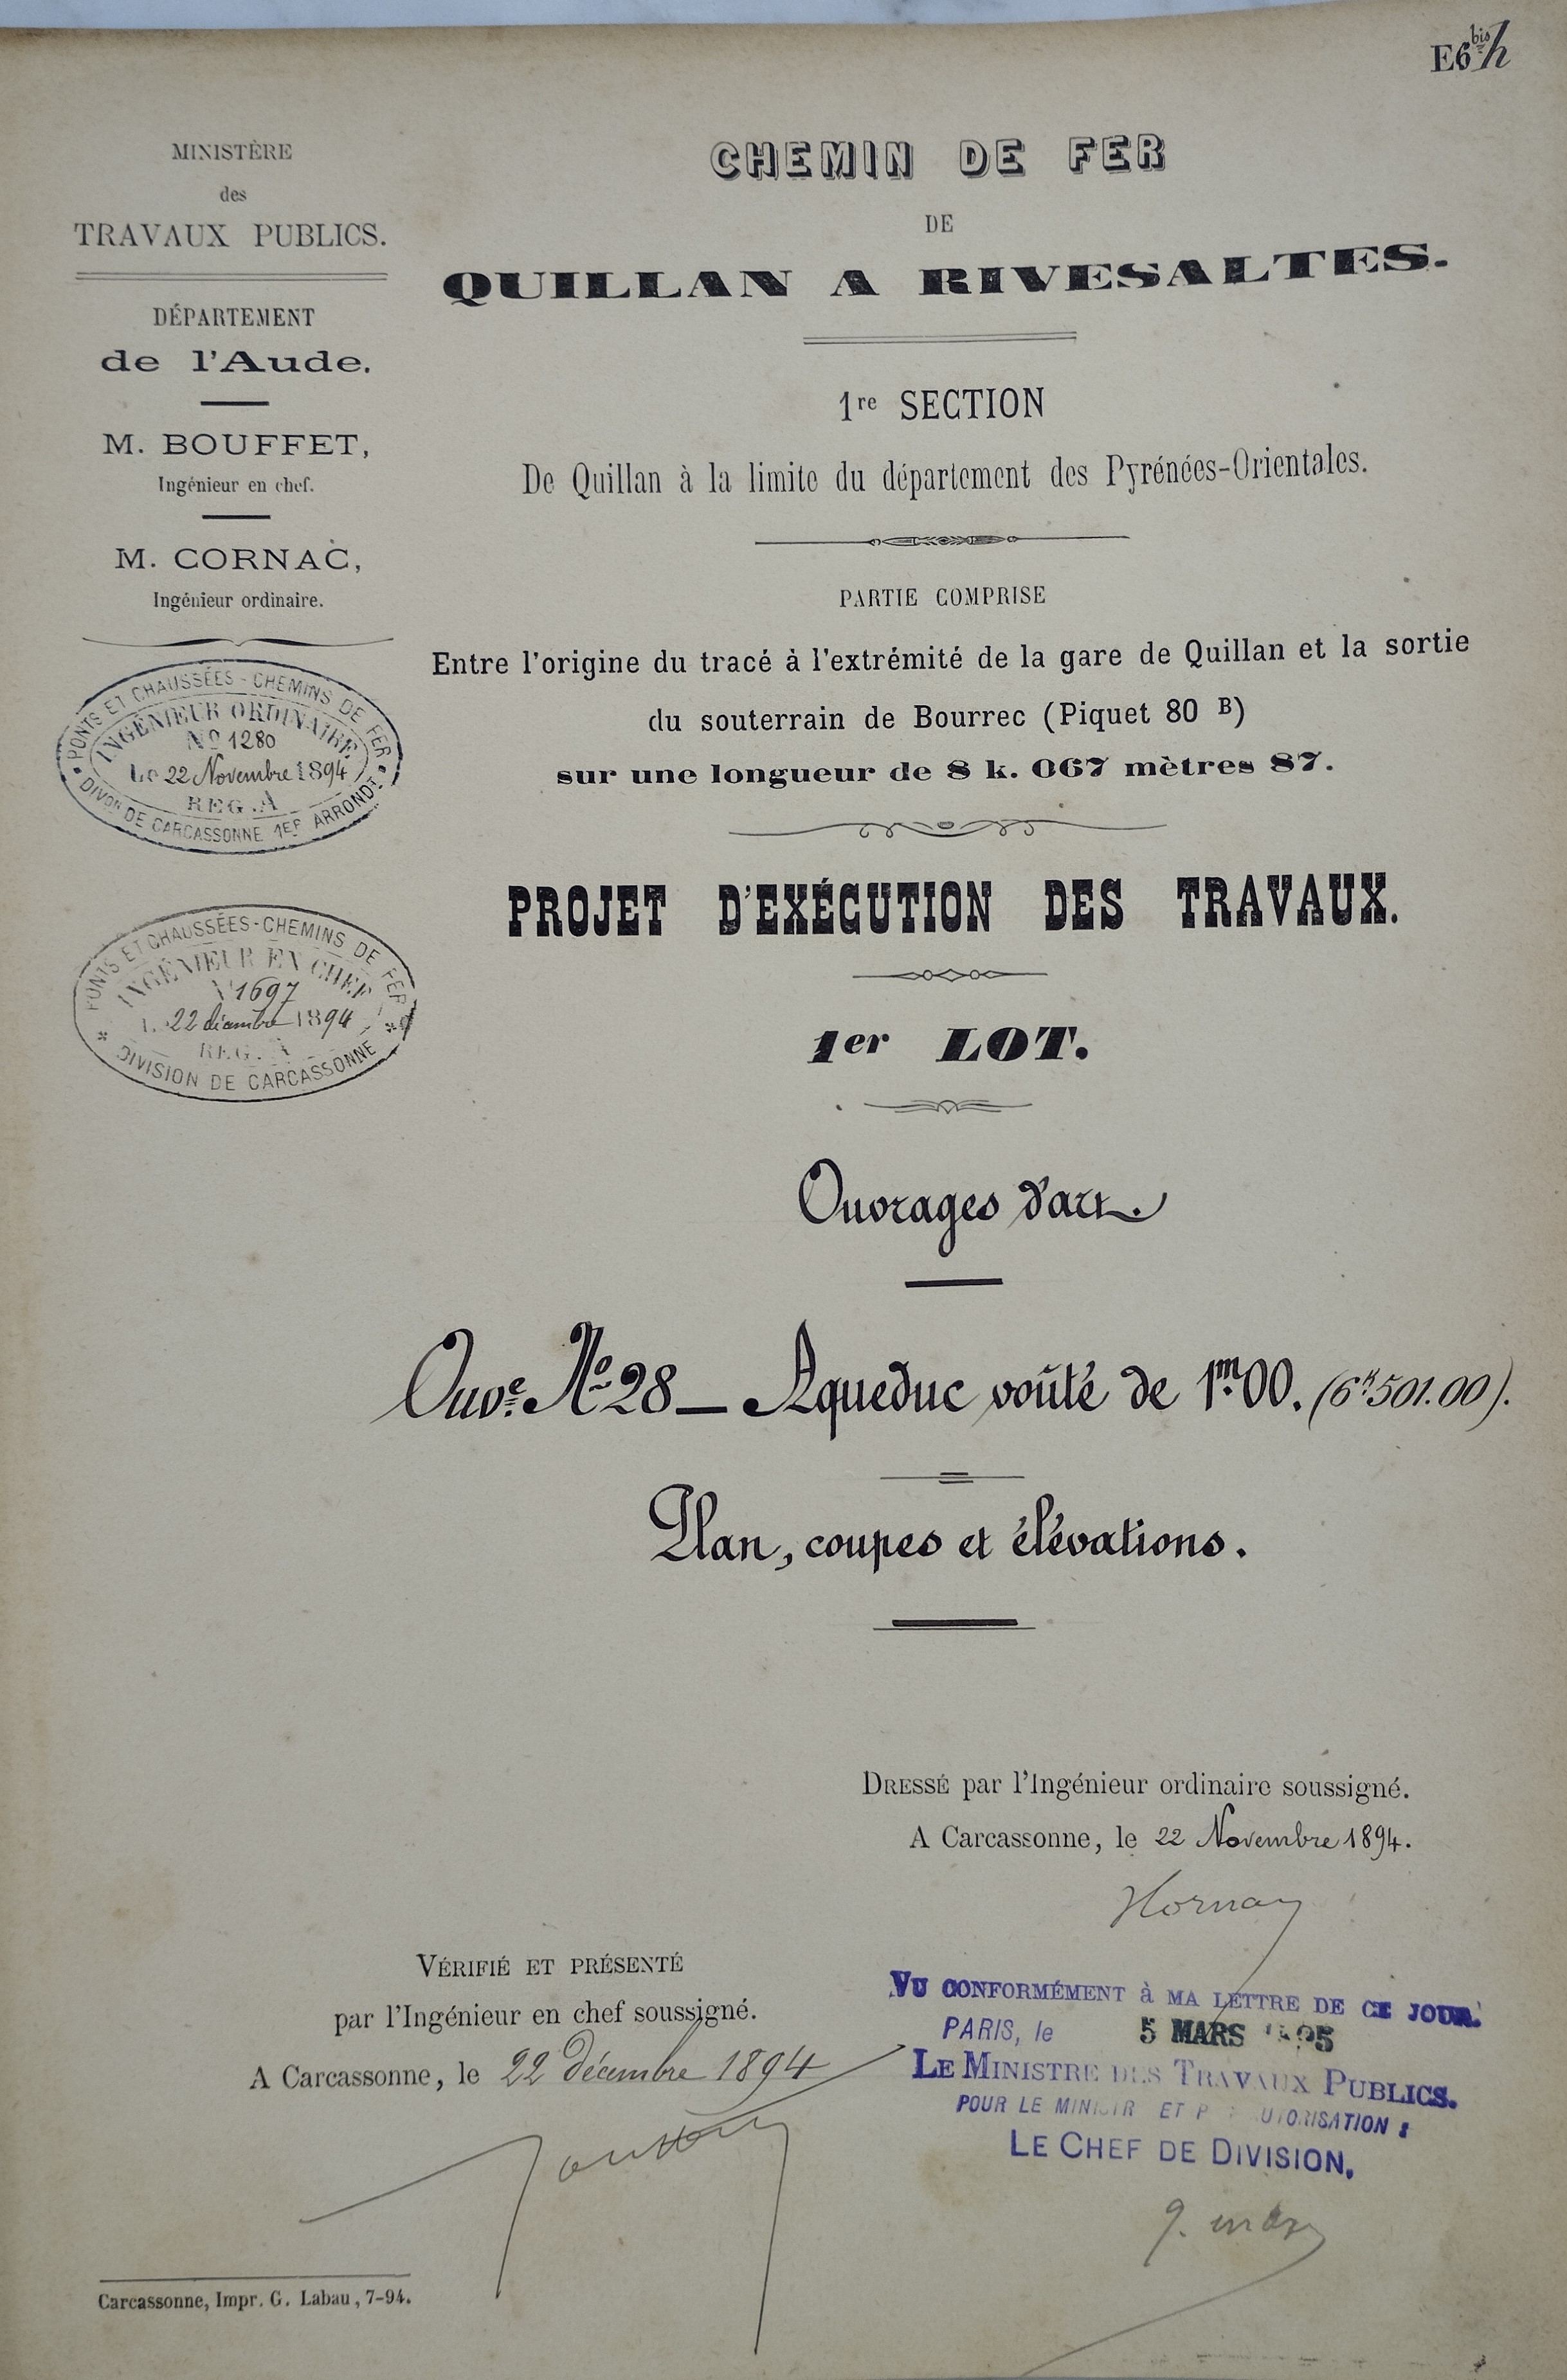 E6 bis h
MINISTÈRE
des
TRAVAUX PUBLICS.
DÉPARTEMENT
de l'Aude.
M. BOUFFET,
Ingénieur en chef.
M. CORNAC,
Ingénieur ordinaire.
PONTS ET CHAUSSÉES - CHEMINS DE FER
INGÉNIEUR ORDINAIRE
No 1280
Le 22 Novembre 1894
REG. A
DIVon DE CARCASSONNE 1ER ARRONDt
PONTS ET CHAUSSÉES - CHEMINS DE FER
INGÉNIEUR EN CHEF
N 1697
L. 22 décembre 1894
REG. A
DIVISION DE CARCASSONNE
CHEMIN DE FER
DE
QUILLAN A RIVESALTES.
1re SECTION
De Quillan à la limite du département des Pyrénées-Orientales.
PARTIE COMPRISE
Entre l'origine du tracé à l'extrémité de la gare de Quillan et la sortie
du souterrain de Bourrec (Piquet 80 B)
sur une longueur de 8 k. 067 mètres 87.
PROJET D'EXÉCUTION DES TRAVAUX.
1er LOT.
Ouvrages d'art.
Ouve No 28 — Aqueduc voûté de 1m00. (6k501.00).
Plan, coupes et élévations.
DRESSÉ par l'Ingénieur ordinaire soussigné.
A Carcassonne, le 22 Novembre 1894.
VÉRIFIÉ ET PRÉSENTÉ
par l'Ingénieur en chef soussigné.
A Carcassonne, le 22 décembre 1894
VU CONFORMÉMENT à MA LETTRE DE CE JOUR.
PARIS, le 5 MARS 1895
LE MINISTRE DES TRAVAUX PUBLICS.
POUR LE MINISTR ET P AUTORISATION :
LE CHEF DE DIVISION,
Carcassonne, Impr. G. Labau, 7-94.